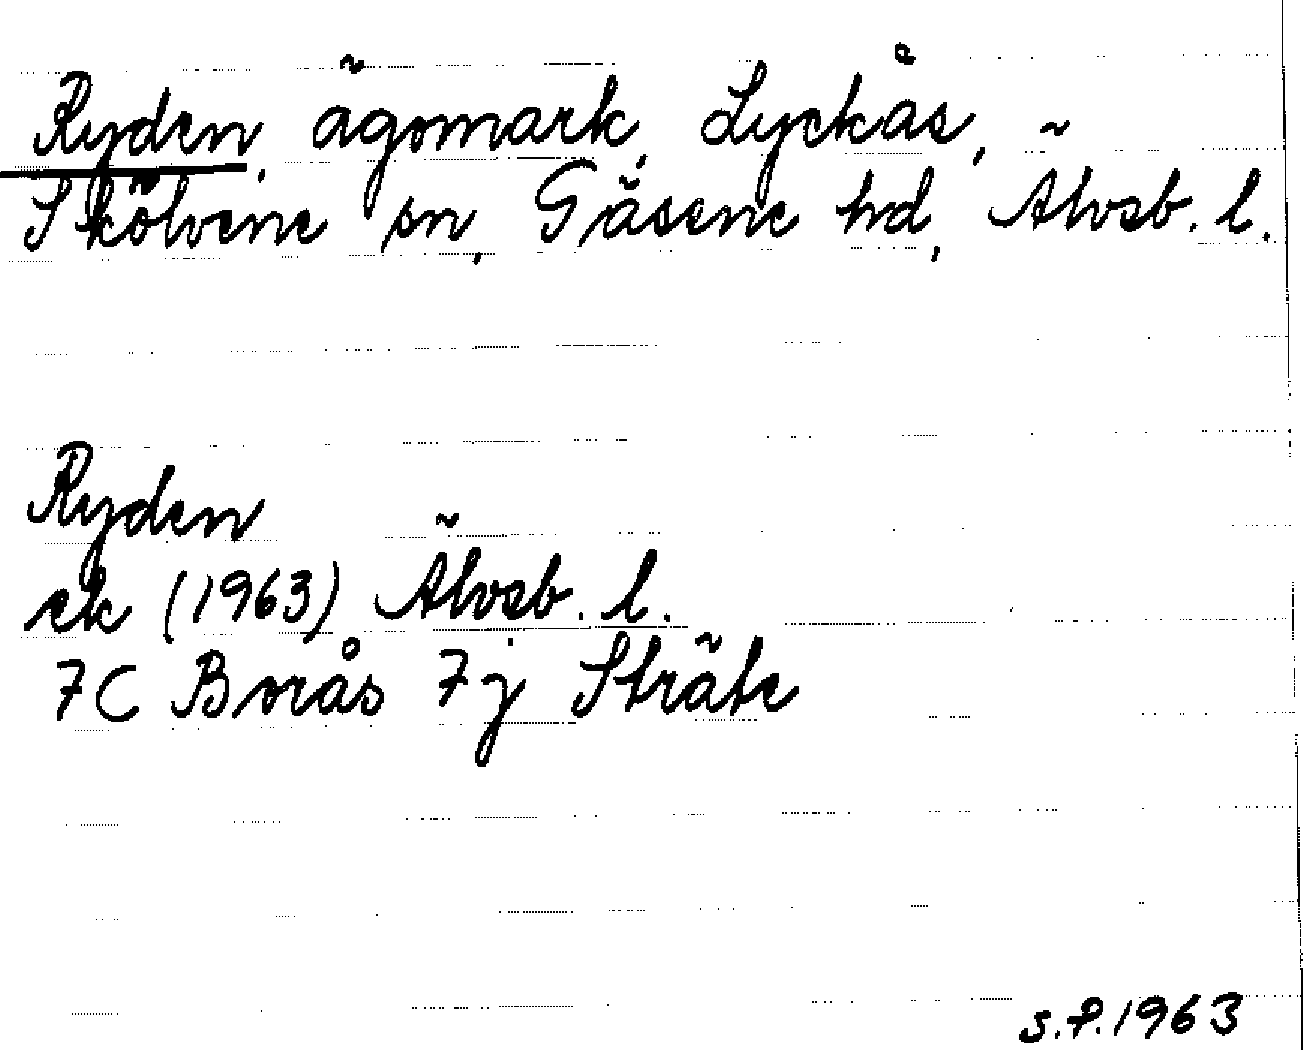 Ryden, ägomark, Lyckås,
Skölvene sn, Gäsene hd, Älvsb. l.
Ryden
ek (1963) Älvsb. l.
7C Borås 7j Sträte
S.P. 1963